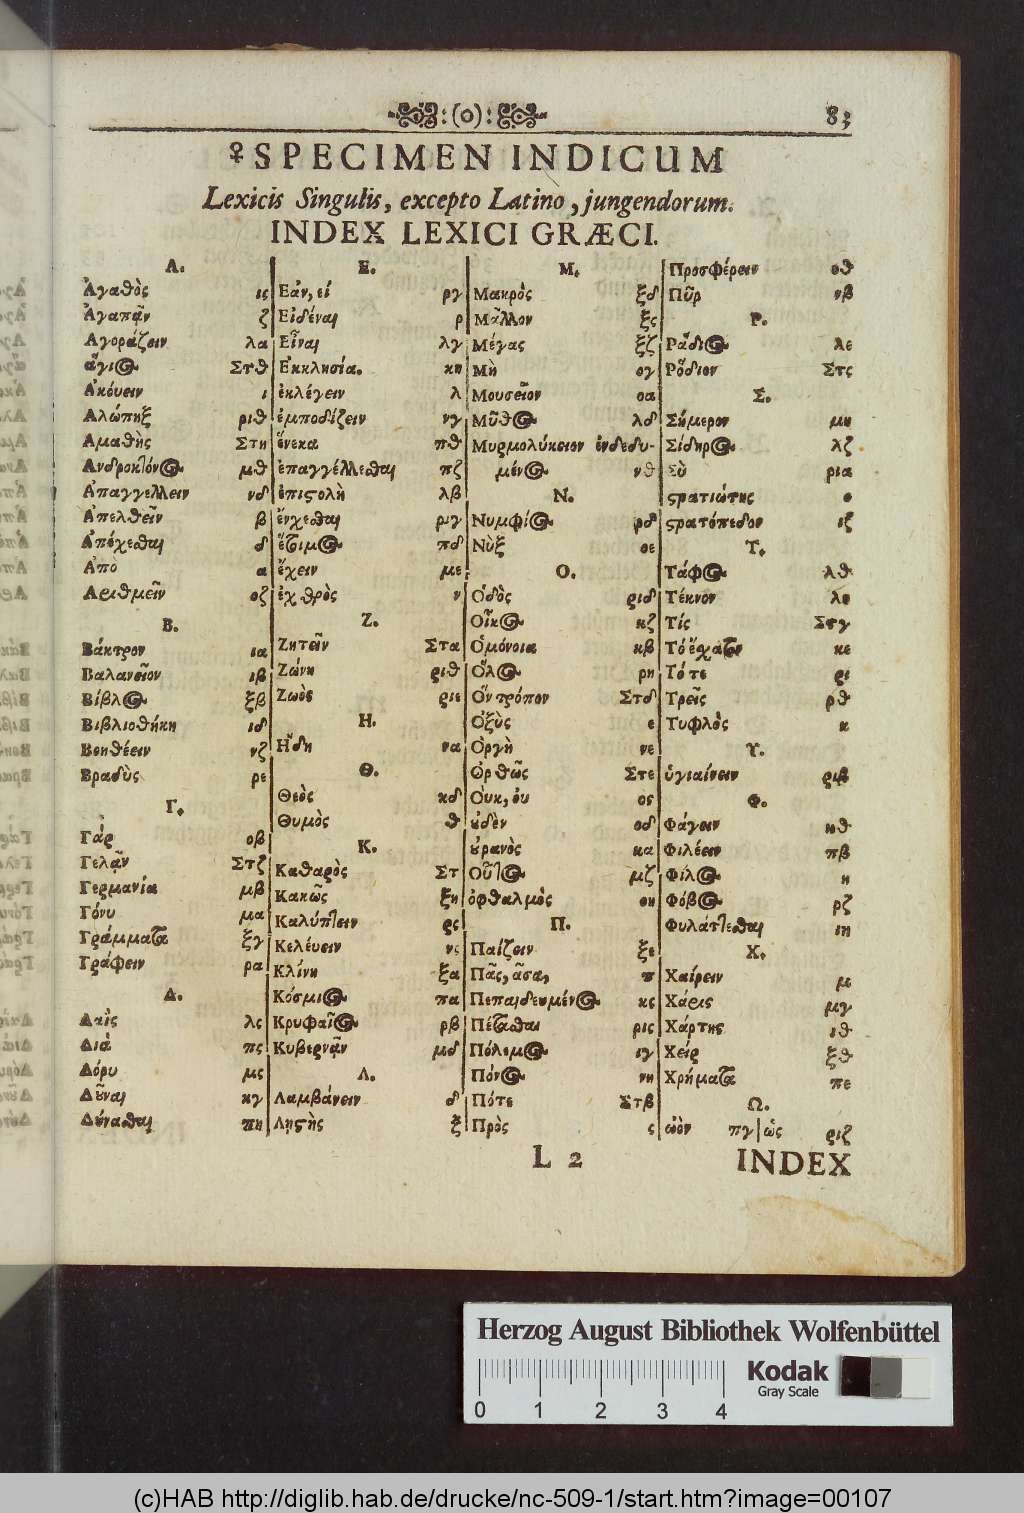 :(o):
83
♀SPECIMEN INDICUM
Lexicis Singulis, excepto Latino, jungendorum.
INDEX LEXICI GRÆCI.
Α.
Ἀγαθὸς ις
Ἀγαπᾷν ζ
Ἀγοράζειν λα
ἅγιος Στθ
Ἀκόυειν ι
Ἀλώπηξ ριθ
Ἀμαθὴς Στη
Ἀνδροκτόνος μθ
Ἀπαγγέλλειν νδ
Ἀπελθεῖν β
Ἀπέχεσθαι δ
Ἀπὸ α
Ἀριθμεῖν οζ
Β.
Βάκτρον ια
Βαλανεῖον ιβ
Βίβλος ξβ
Βιβλιοθήκη ιδ
Βοηθέειν νζ
Βραδὺς ρε
Γ.
Γάρ οβ
Γελᾷν Στζ
Γερμανία μβ
Γόνυ μα
Γράμματα ξγ
Γράφειν ρα
Δ.
Δαὶς λς
Διὰ πς
Δόρυ μς
Δῦναι κγ
Δύνασθαι πη
Ε.
Ἐάν, εἰ ργ
Εἰδέναι ρ
Εἶναι λγ
Ἐκκλησία. κη
ἐκλέγειν λ
ἐμποδίζειν νγ
ἕνεκα πθ
ἐπαγγέλλεσθαι πζ
ἐπιστολὴ λβ
ἔυχεσθαι μγ
ἕτοιμος πδ
ἔχειν με
ἐχθρὸς ν
Ζ.
Ζητεῖν Στα
Ζώνη ριθ
Ζωὸς ριε
Η.
Ἤδη να
Θ.
Θεὸς κδ
Θυμὸς θ
Κ.
Καθαρὸς Στ
Κακῶς ξη
Καλύπτειν ρς
Κελέυειν νς
Κλίνη ξα
Κόσμιος πα
Κρυφαῖος ρβ
Κυβερνᾷν μδ
Λ.
Λαμβάνειν δ
Λῃστὴς ξ
Μ.
Μακρὸς ξδ
Μᾶλλον ξς
Μέγας ξζ
Μὴ ογ
Μουσεῖον οα
Μῦθος λδ
Μυρμολύκειον ἐνδεδυ-
μένος νθ
Ν.
Νυμφίος ρδ
Νὺξ οε
Ο.
Ὁδὸς ριδ
Οἶκος κζ
Ὁμόνοια κβ
Ὅλος ρη
Ὃν τρόπον Στδ
Ὀξὺς ε
Ὀργὴ νε
Ὀρθῶς Στε
Ὀυκ, ὀυ ος
ὀυδὲν οδ
ὀυρανὸς κα
Οὗτος μζ
ὀφθαλμὸς οη
Π.
Παίζειν ξε
Πᾶς, ᾶσα, π
Πεπαιδευμένος κς
Πέτασθαι ρις
Πόλεμος ιγ
Πόνος νη
Πότε Στβ
Πρὸς ς
Προσφέρειν οθ
Πῦρ νβ
Ρ.
Ῥᾴδιος λε
Ῥόδιον Στς
Σ.
Σήμερον μη
Σίδηρος λζ
Σὺ ρια
στρατιώτης ο
στρατόπεδον ιζ
Τ.
Τάφος λθ
Τέκνον λο
Τίς Στγ
Τὸ ἔσχατον κε
Τότε ρι
Τρεῖς ρθ
Τυφλὸς κ
Υ.
ὑγιαίνειν ριβ
Φ.
Φάγειν κθ
Φιλέειν πβ
Φίλος η
Φόβος ρζ
Φυλάττεσθαι ιη
Χ.
Χαίρειν μ
Χάρις μγ
Χάρτης ιθ
Χείρ ξθ
Χρήματα πε
Ω.
ὠὸν πγ | ὡς ριζ
L 2
INDEX
Herzog August Bibliothek Wolfenbüttel
Kodak
Gray Scale
0 1 2 3 4
(c)HAB http://diglib.hab.de/drucke/nc-509-1/start.htm?image=00107